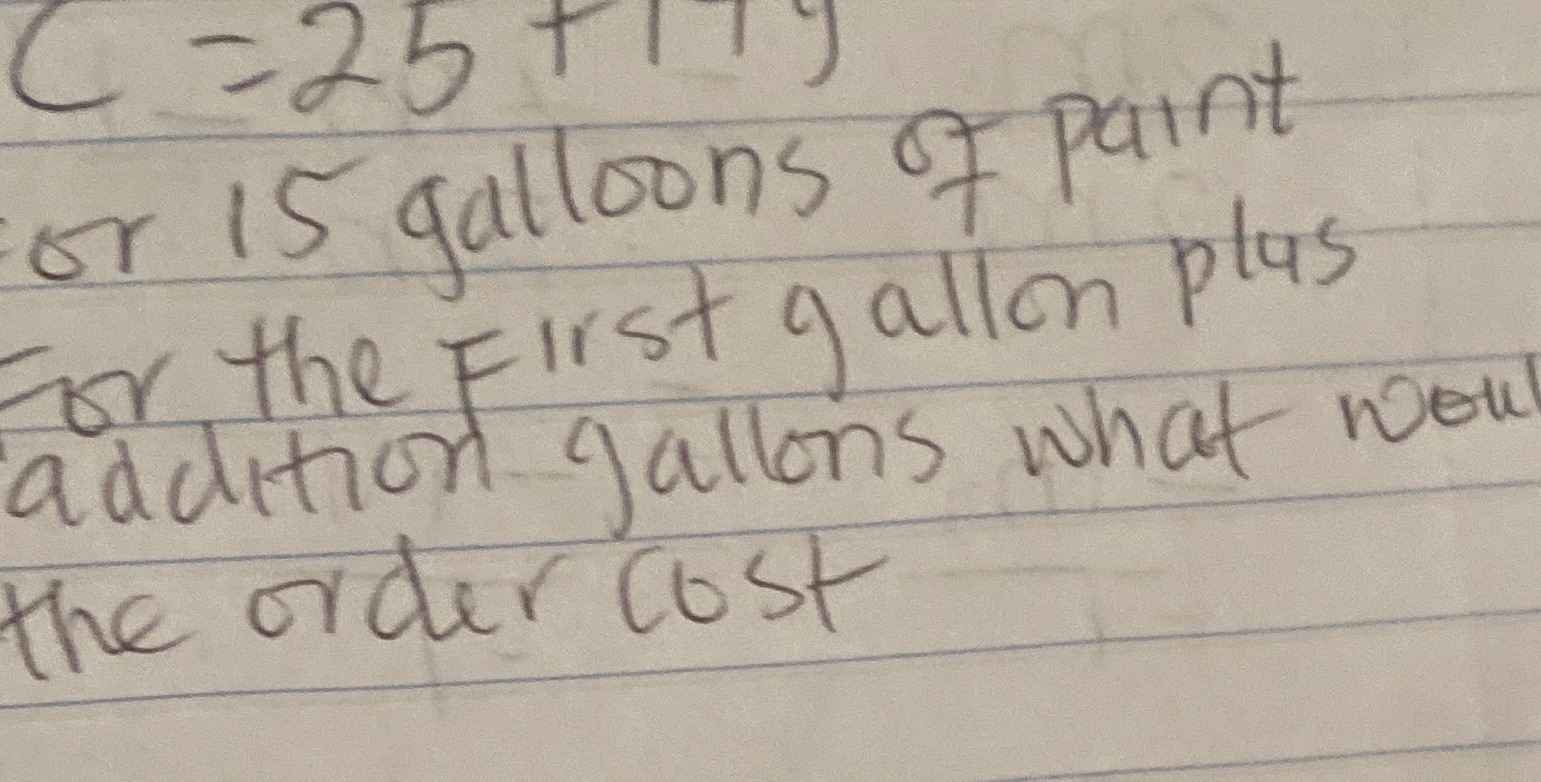 C = 25 +
or 15 galloons of paint
For the First gallon plus
addition gallons what woul
the order cost